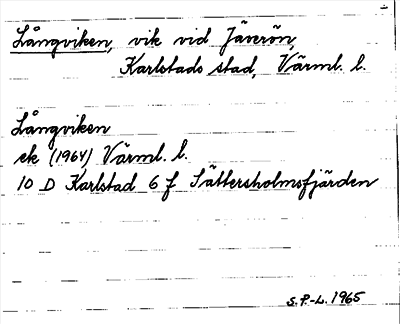 Långviken, vik vid Jäverön,
Karlstads stad, Värml. l.
Långviken
ek (1964) Värml. l.
10 D Karlstad 6 f Sättersholmsfjärden
S.P.-L. 1965